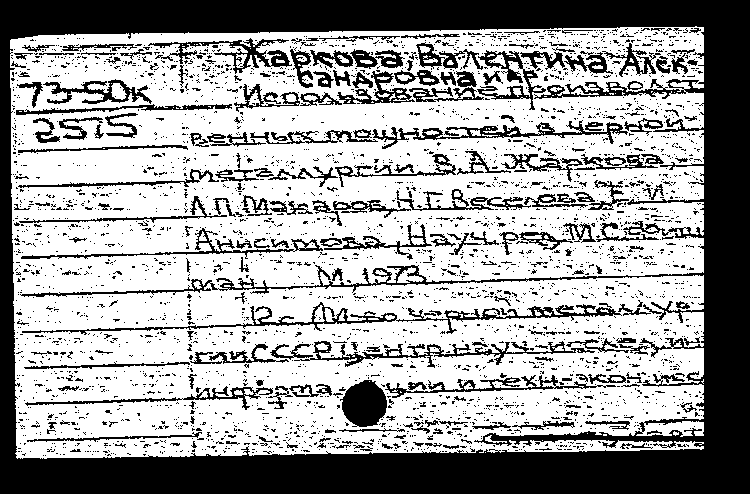 Жаркова, Валентина Алек-
сандровна и др.
73-50к
Использование производст
2575
венных мощностей в черной
металлургии. В.А. Жаркова,
Л.П. Макаров, Н.Г. Веселова, Е.И.
Анисимова, Науч. ред. М.С. Фиш
ман, М., 1973
12 с (М-во черной металлур
гии СССР Центр. науч.-исслед. ин
информа ции и техн.-экон. исс